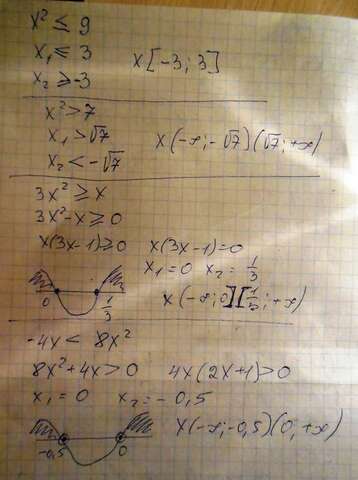 x² ≤ 9
x₁ ≤ 3
x₂ ≥ -3
x [-3; 3]
x² > 7
x₁ > √7
x₂ < -√7
x (-∞; -√7) (√7; +∞)
3x² ≥ x
3x² - x ≥ 0
x(3x-1) ≥ 0 x(3x-1) = 0
x₁ = 0 x₂ = 1/3
0 1/3
x (-∞; 0] [1/3; +∞)
-4x < 8x²
8x² + 4x > 0 4x(2x+1) > 0
x₁ = 0 x₂ = -0,5
-0,5 0
x (-∞; -0,5) (0; +∞)